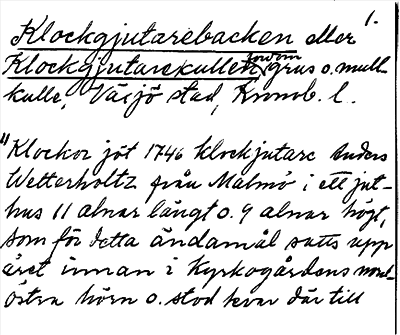 1.
Klockgjutarebacken eller
Klockgjutarekullen, fordom grus o. mull-
kulle, Växjö stad, Kronob. l.
"Klockor göt 1746 klockjutare Anders
Wetterholtz från Malmö i ett jut-
hus 11 alnar långt o. 9 alnar högt,
som för detta ändamål satts upp
året innan i Kyrkogårdens nord-
östra hörn o. stod kvar där till